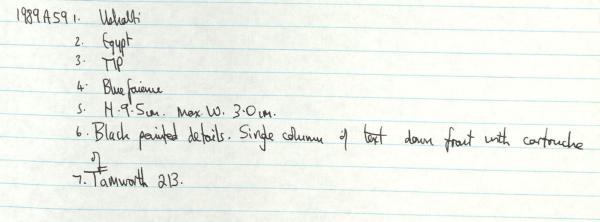 1989A59 1. Ushabti
2. Egypt
3. TIP
4. Blue faience
5. H. 9.5cm. Max W. 3.0cm.
6. Black painted details. Single column of text down front with cartouche
of
7. Tamworth 213.